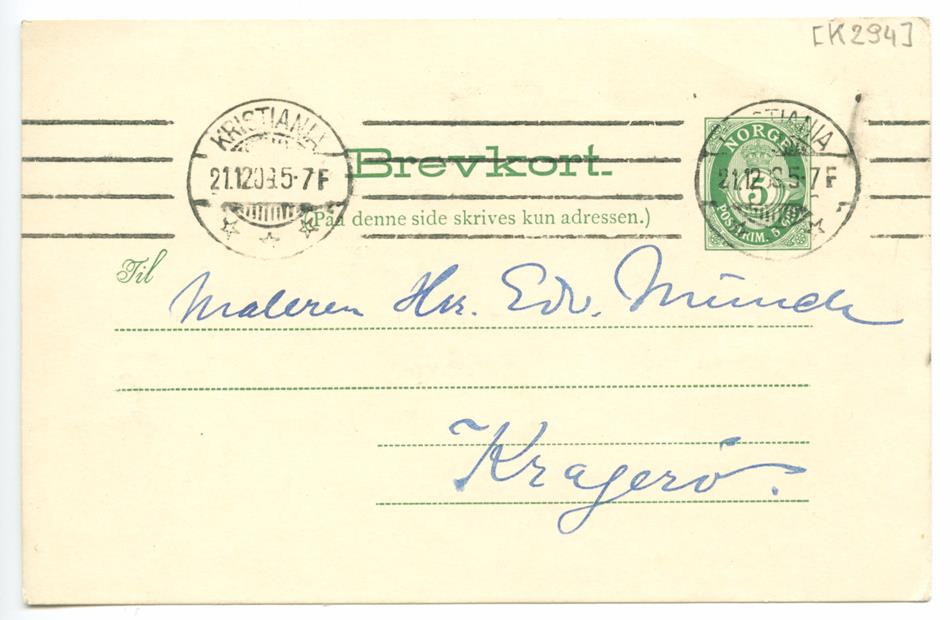 [K294]
KRISTIANIA
21.12 09.5-7 F
Brevkort.
(Paa denne side skrives kun adressen.)
NORGE
5
POSTFRIM. 5 ØRE
KRISTIANIA
21.12 09.5-7 F
Til
Maleren Hr. Edv. Münch
Kragerö.